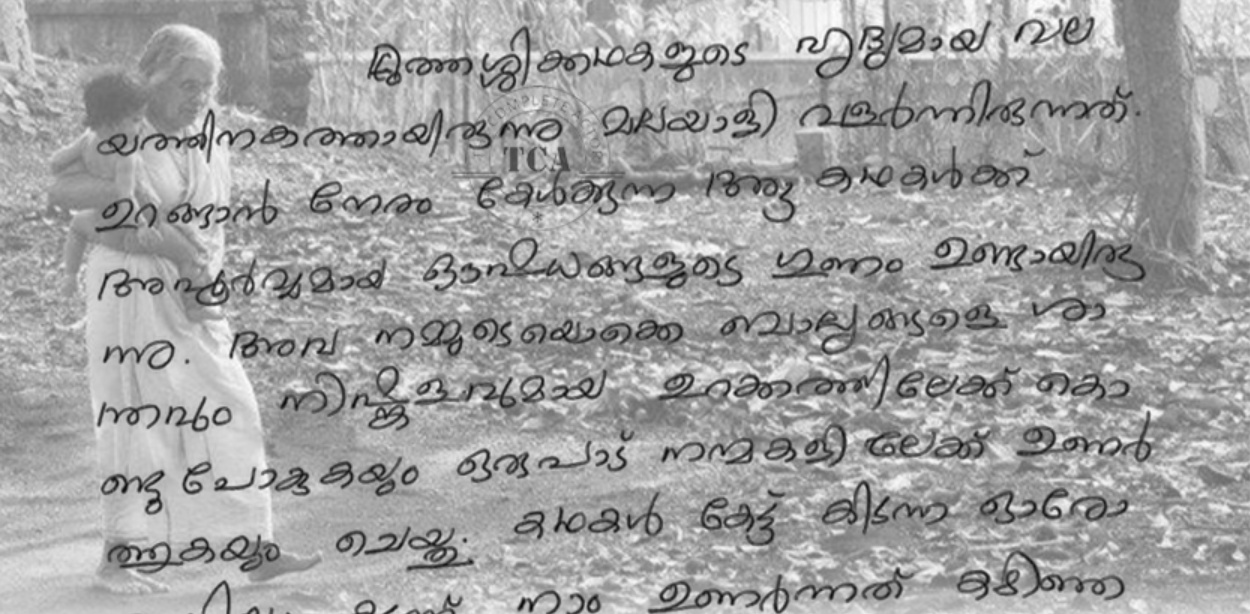 മുത്തശ്ശിക്കഥകളുടെ ഹൃദ്യമായ വല
യത്തിനകത്തായിരുന്നു മലയാളി വളർന്നിരുന്നത്.
ഉറങ്ങാൻ നേരം കേൾക്കുന്ന ആ കഥകൾക്ക്
അപൂർവ്വമായ ഔഷധങ്ങളുടെ ഗുണം ഉണ്ടായിരു
ന്നു. അവ നമ്മുടെയൊക്കെ ബാല്യങ്ങളെ ശാ
ന്തവും നിഷ്കളവുമായ ഉറക്കത്തിലേക്ക് കൊ
ണ്ടു പോകുകയും ഒരുപാട് നന്മകളിലേക്ക് ഉണർ
ത്തുകയും ചെയ്തു. കഥകൾ കേട്ട് കിടന്ന ഓരോ
നാം ഉണർന്നത് കഴിഞ്ഞ
COMPLETE
TCA